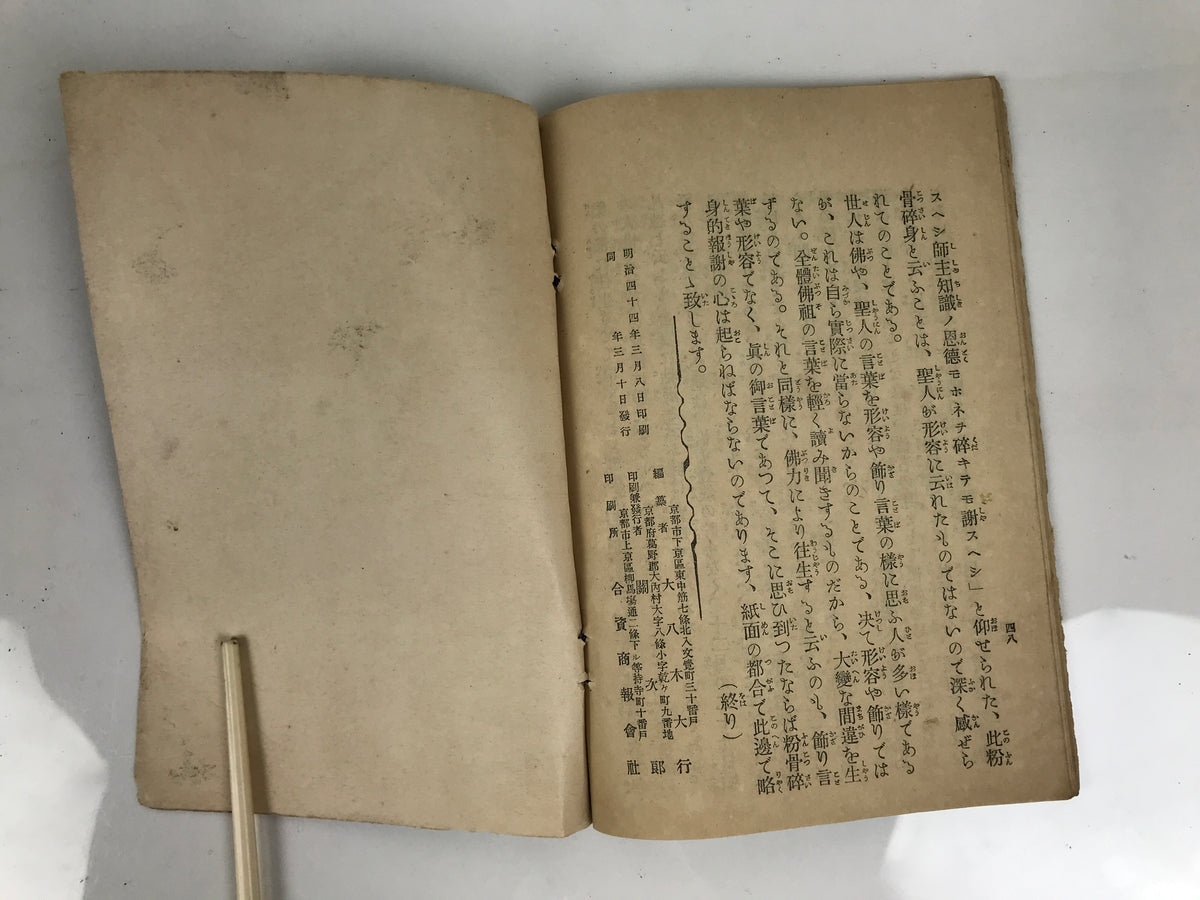 四八
スヘシ師主知識ノ恩德モホネヲ碎キテモ謝スヘシ」と仰せられた、此粉
骨碎身と云ふことは、聖人が形容に云れたものではないので深く感ぜら
れてのことである。
世人は佛や、聖人の言葉を形容や飾り言葉の樣に思ふ人が多い樣である
が、これは自ら實際に當らないからのことである、決て形容や飾りでは
ない。全體佛祖の言葉を輕く讀み聞きするものだから、大變な間違を生
ずるのである。それと同樣に、佛力により往生すると云ふのも、飾り言
葉や形容でなく、眞の御言葉であつて、そこに思ひ到つたならば粉骨碎
身的報謝の心は起らねばならないのであります、紙面の都合で此邊で略
することゝ致します。
(終り)
明治四十四年三月八日印刷
同年三月十日發行
京都市下京區東中筋七條北入文覺町三十番戸
編纂者 大八木大行
京都府葛野郡大內村大字八條小字乾ケ町九番地
印刷兼發行者 關次郞
京都市上京區柳馬場通二條下ル等持寺町十番戸
印刷所 合資會社商報